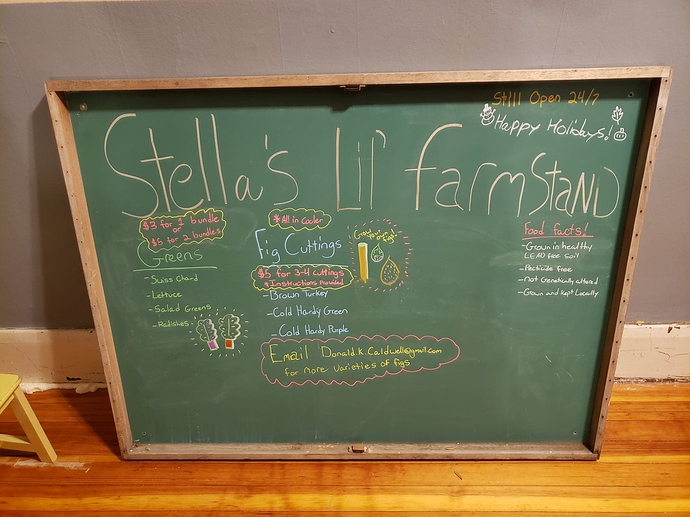 Still Open 24/7
Happy Holidays!
Stella's Lil' farmStaND
$3 for 1 bundle
or
$5 for 2 bundles
Greens
-Swiss Chard
-Lettuce
-Salad Greens
-Radishes
$ All in Cooler
Fig Cuttings
$5 for 3-4 cuttings
Instructions provided
-Brown Turkey
-Cold Hardy Green
-Cold Hardy Purple
Grow your own figs!
Email Donald.K.Caldwell@gmail.com
for more varieties of figs
Food Facts!
-Grown in healthy
LEAD free soil
-Pesticide free
-not Genetically altered
-Grown and Kept Locally